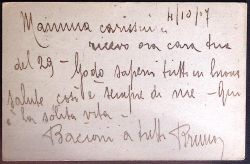 4/10/17
Mamma carissima
ricevo ora cara tua
del 29 - Godo saperti tutti in buona
salute così è sempre di me - Qui
è la solita vita -
Bacioni a tutti Bruno